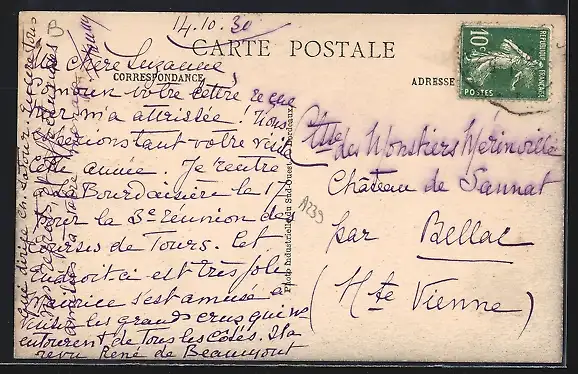 14.10.30
CARTE POSTALE
Ma chère Suzanne
CORRESPONDANCE
ADRESSE
10c
REPUBLIQUE FRANÇAISE
POSTES
votre lettre reçue
hier m'a attristée! Nous
escomptions tant votre visite
cette année. Je rentre
à La Bourdaisière le 17
pour la 3e réunion des
courses de Tours. Cet
Endroit ci est très joli
Maurice s'est amusé à
visiter les grands crus qui nous
entourent de tous les côtés. Il a
revu René de Beaumont
Ctesse des Monstiers Mérinville
Château de Sannat
par Bellac
(Hte Vienne)
Photo Industrielle du Sud-Ouest, Bordeaux
A239